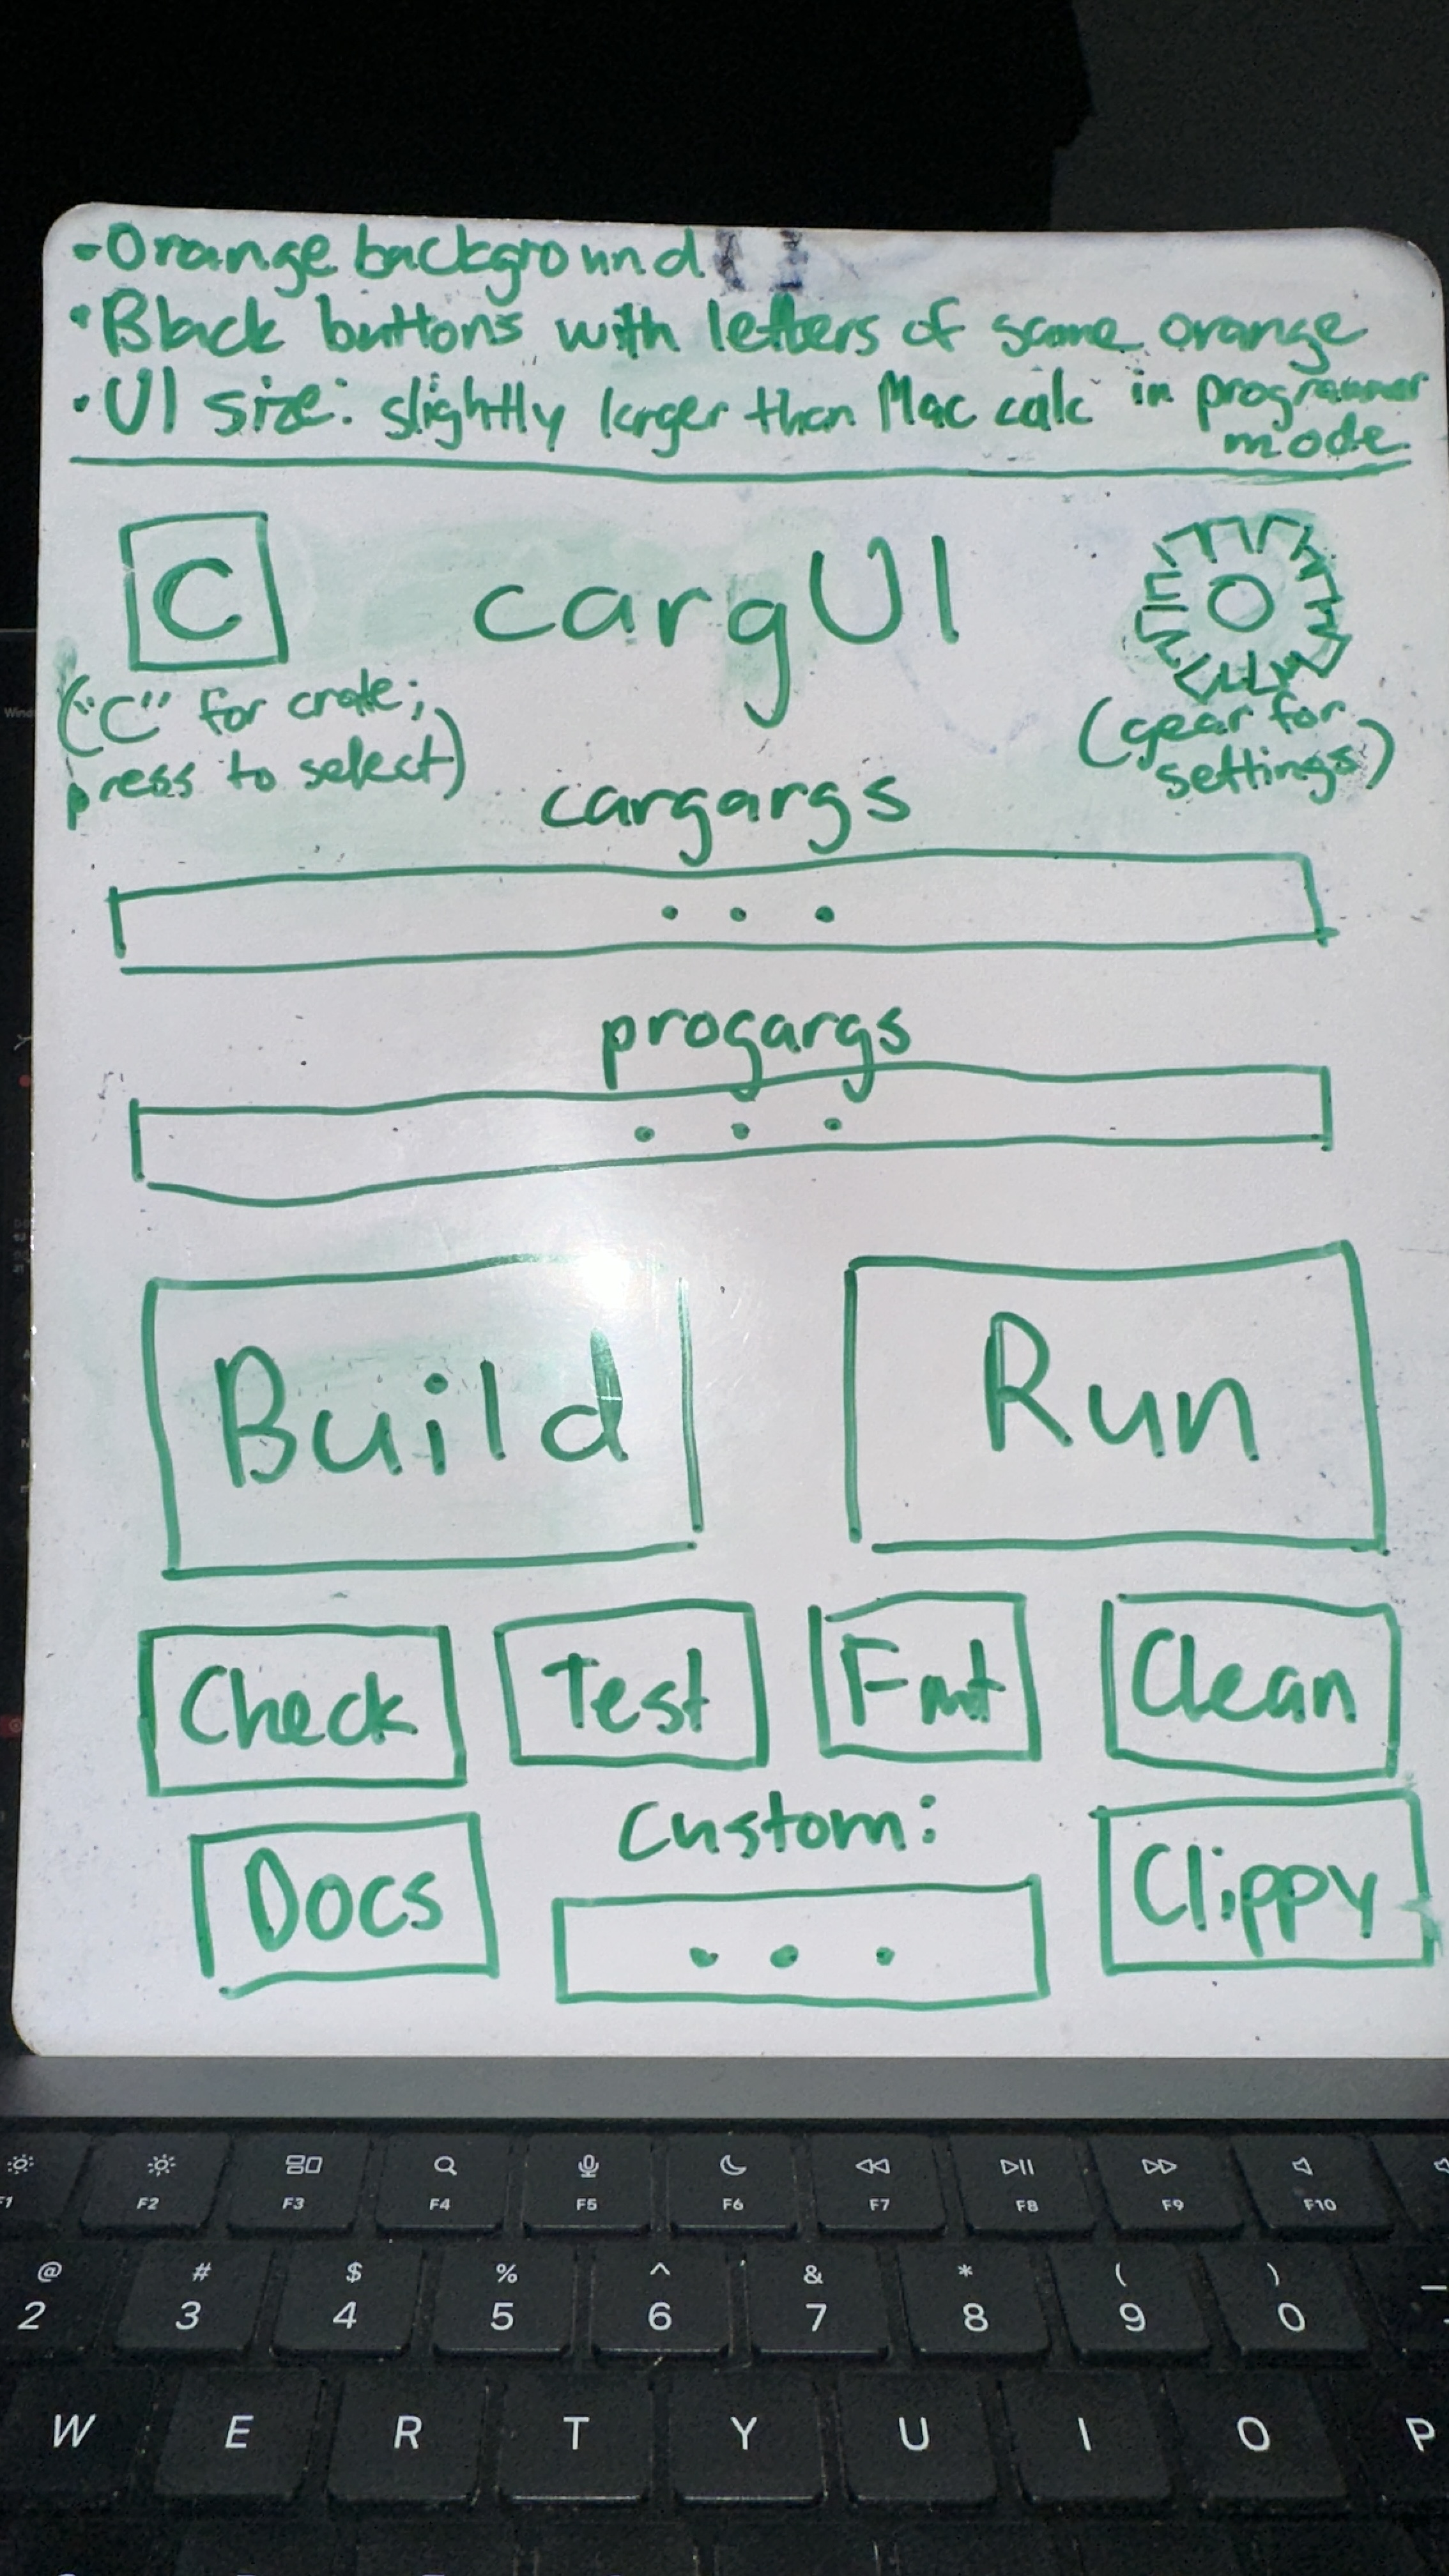 - Orange background
• Black buttons with letters of same orange
• UI size: slightly larger than Mac calc in programmer
mode
C
cargUI
("C" for crate;
press to select)
(gear for
settings)
cargargs
• • •
progargs
• • •
Build Run
Check Test Fmt Clean
Custom:
Docs • • • Clippy
F1 F2 F3 F4 F5 F6 F7 F8 F9 F10
@ # $ % ^ & * ( )
2 3 4 5 6 7 8 9 0
W E R T Y U I O P